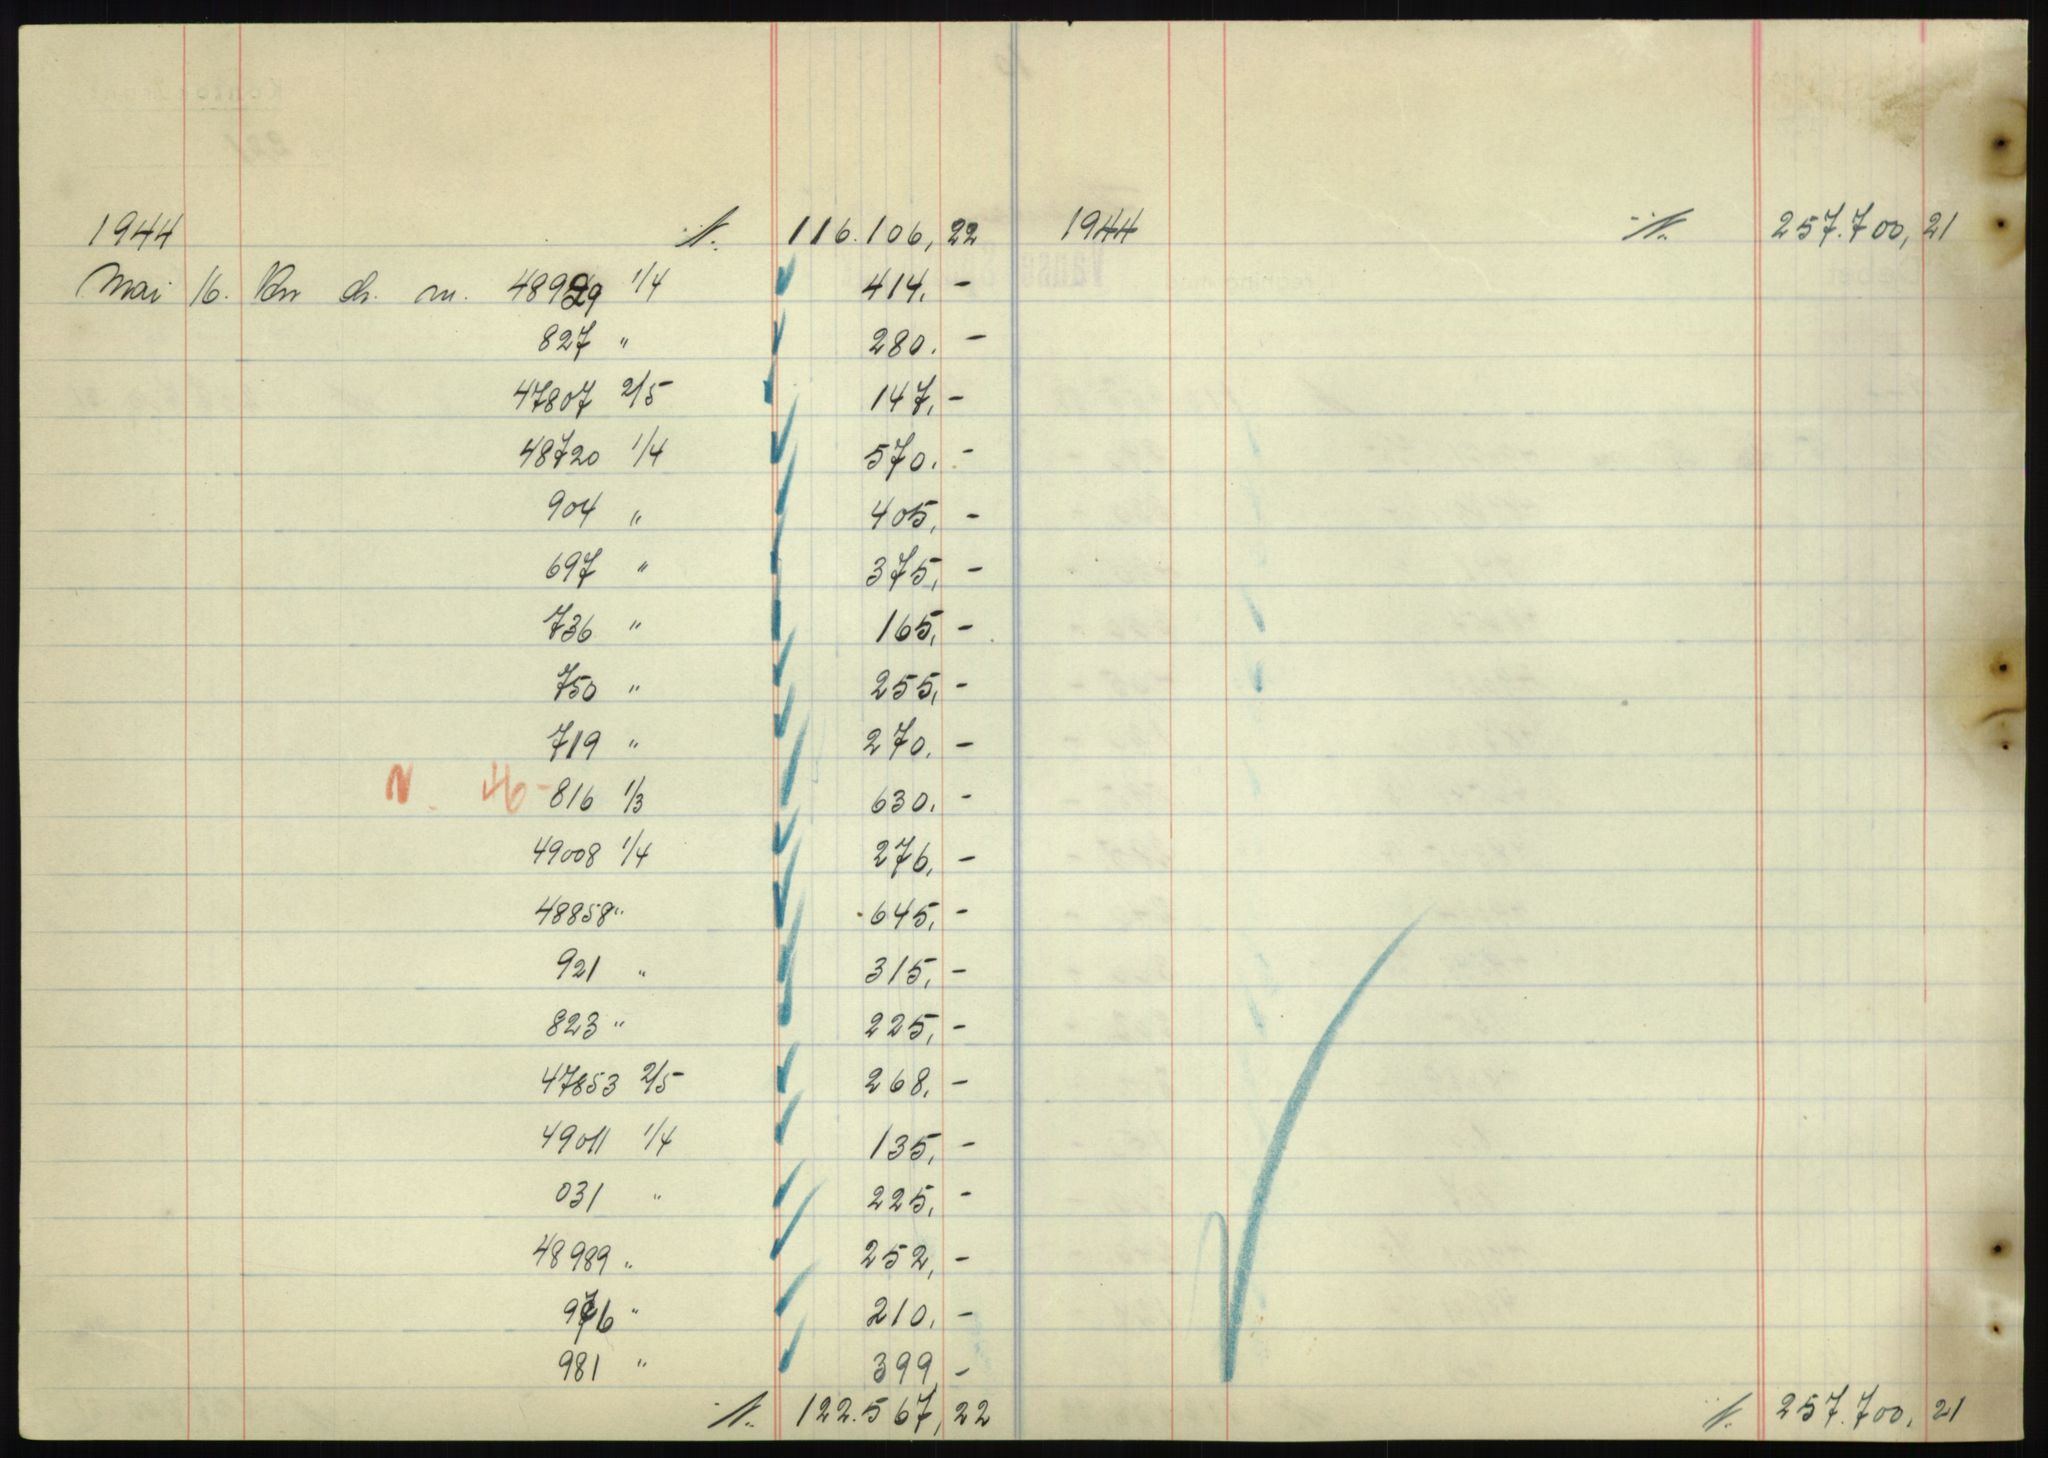 1944 116.106,22 1944 257.700,21
Mai 16. 48929 1/4 414.-
827 " 280.-
47807 2/5 147,-
48720 1/4 570.-
904 " 405,-
697 " 375,-
736 " 165,-
750 " 255,-
719 " 270.-
N. 46- 816 1/3 630.-
49008 1/4 276,-
48858 " 645,-
921 " 315,-
823 " 225,-
47853 2/5 268.-
49011 1/4 135,-
031 " 225,-
48989 " 252,-
976 " 210.-
981 " 399,-
122.567,22 257.700,21